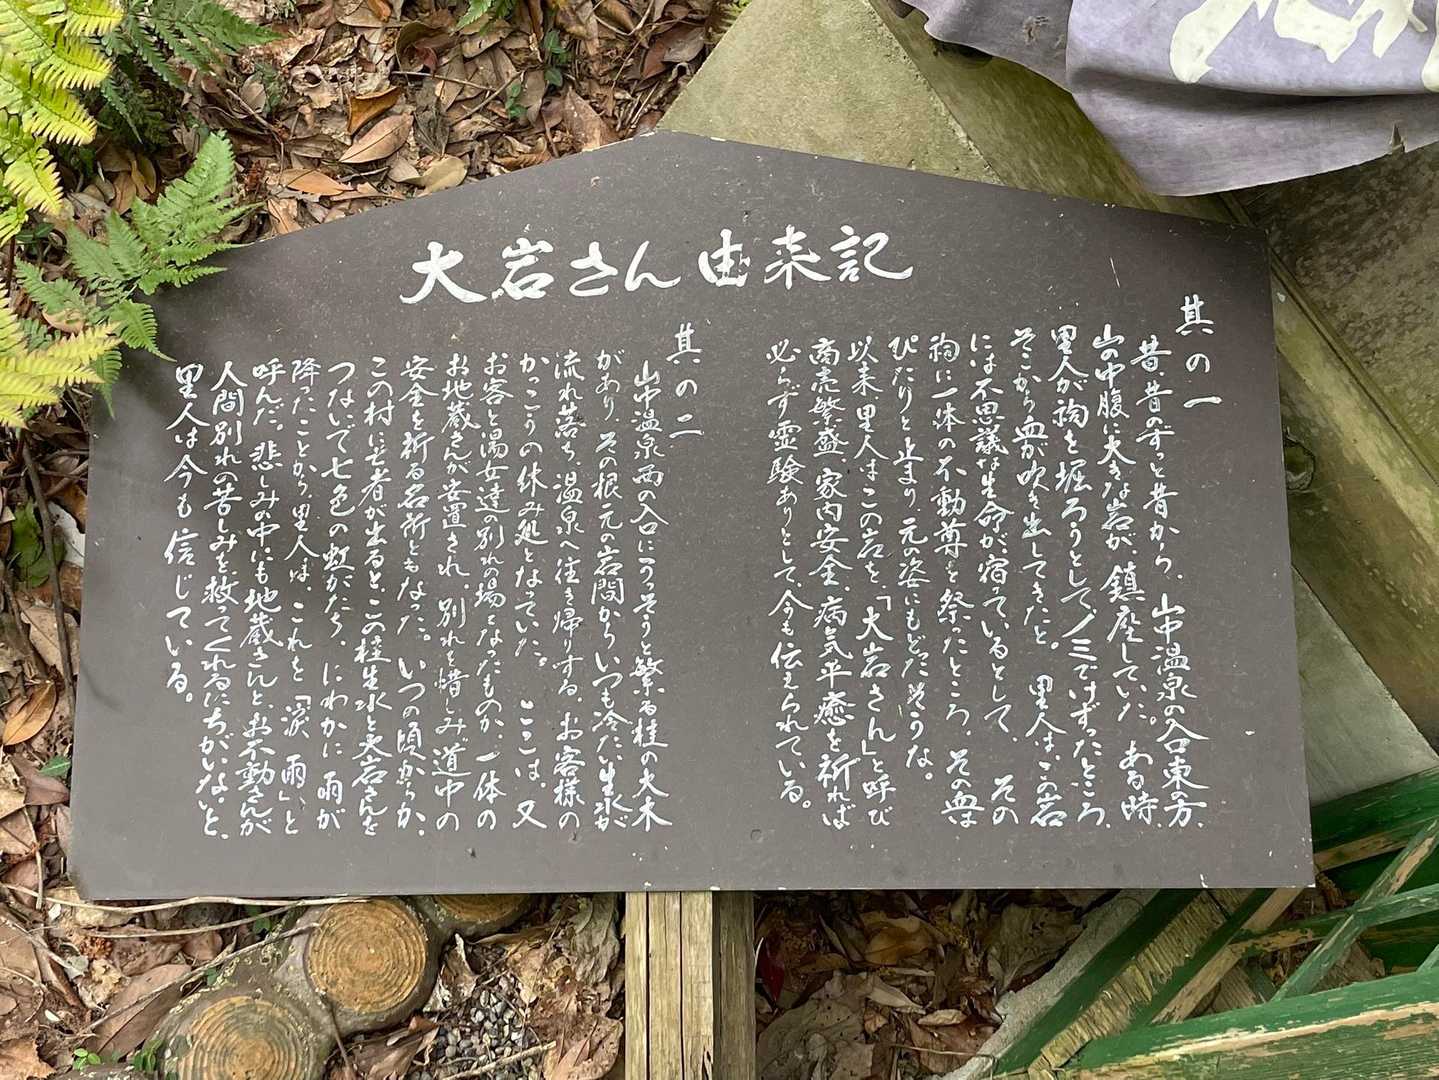 大岩さん由来記
其の一
昔、昔のずっと昔から、山中温泉の入口東の方、
山の中腹に大きな岩が、鎮座していた。ある時、
里人が祠を堀ろうとしてノミでけずったところ、
そこから血が吹き出してきたと。里人は、この岩
には不思議な生命が、宿っているとして、その
祠に一体の不動尊を祭ったところ、その血は
ぴたりと止まり、元の姿にもどたそうな。
以来、里人はこの岩を、「大岩さん」と呼び
商売繁盛、家内安全、病気平癒を祈れば
必らず霊験ありとして、今も伝えられている。
其の二
山中温泉西の入口にうっそうと繁る桂の大木
があり、その根元の岩間からいつも冷たい生水が
流れ落ち、温泉へ往き帰りする。お客様の
かっこうの休み処となっていた。ここは、又
お客と湯女達の別れの場となったものか、一体の
お地蔵さんが安置され、別れを惜しみ、道中の
安全を祈る名所ともなった。いつの頃からか、
この村に亡者が出ると、この桂生水と大岩さんを
つないで七色の虹がたち、にわかに雨が
降ったことから、里人は、これを「涙雨」と
呼んだ。悲しみの中にも地蔵さんと、お不動さんが
人間別れの苦しみを、救ってくれるにちがいないと、
里人は今も信じている。